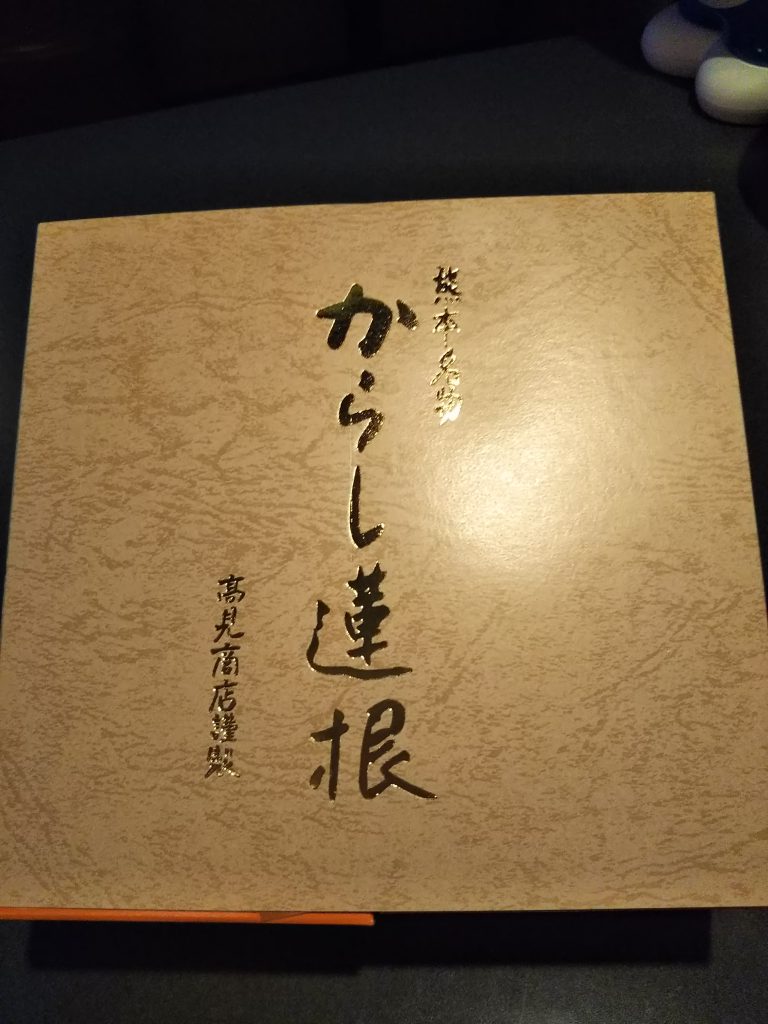 熊本名物
からし蓮根
高見商店謹製